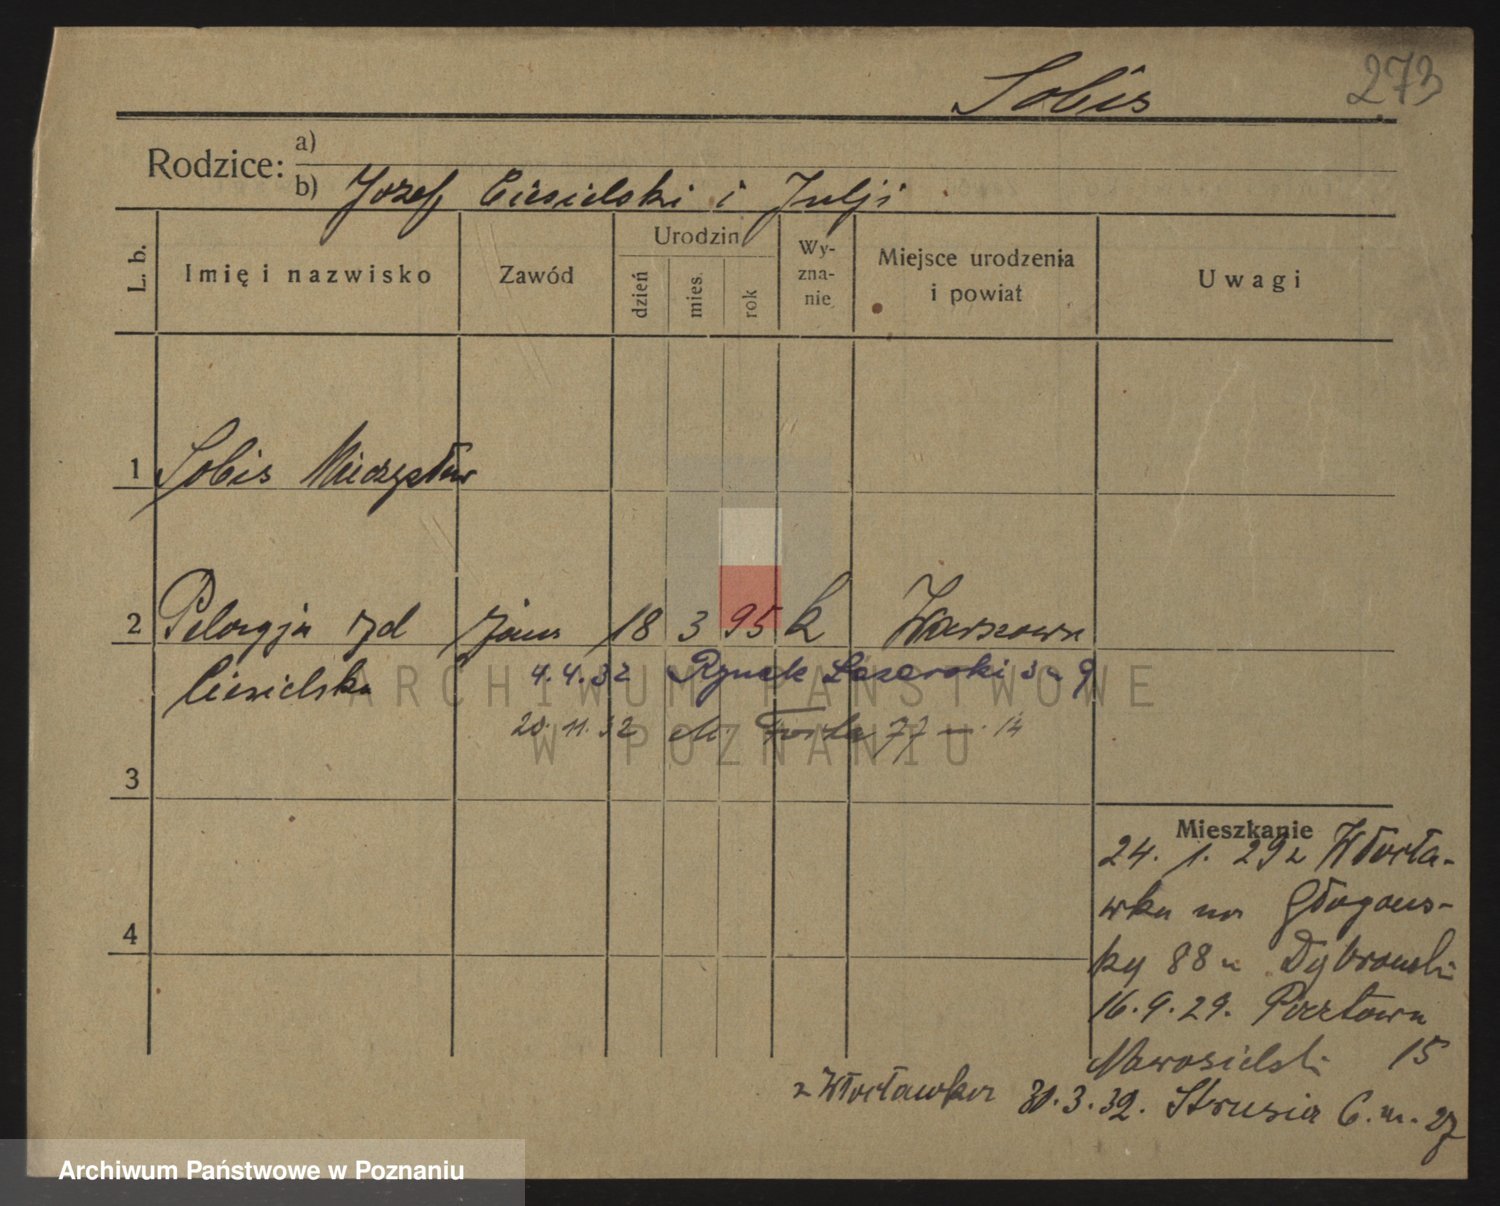 Sobis 273
Rodzice: a)
b) Józef Ciesielski i Julji
L. b. Imię i nazwisko Zawód Urodzin dzień mies. rok Wy-zna-nie Miejsce urodzenia i powiat Uwagi
1 Sobis Mieczysław
2 Pelagja żona 18 3 95 k Warszawa
Ciesielska 4.4.32 Rynek Łazarski 3 9
20.11.32 M. Focha 77 14
3
4
Mieszkanie
24. 1. 29 z Włocła-
wka na Głogows-
ky 88 u Dybrowski
16.9.29. Pocztowa
Nawosielski 15
z Włocławka 30.3.32. Strusia 6. m. 27
ARCHIWUM PAŃSTWOWE
W POZNANIU
Archiwum Państwowe w Poznaniu